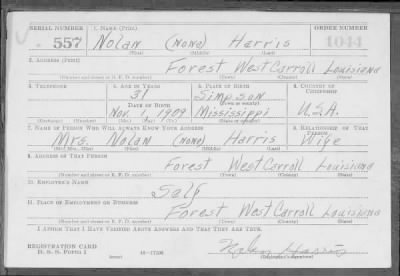 SERIAL NUMBER 1. NAME (Print) ORDER NUMBER
557 Nolan (None) Harris 1044
(First) (Middle) (Last)
2. ADDRESS (Print)
Forest West Carroll Louisiana
(Number and street or R. F. D. number) (Town) (County) (State)
3. TELEPHONE 4. AGE IN YEARS 5. PLACE OF BIRTH 6. COUNTRY OF CITIZENSHIP
31 Simpson
DATE OF BIRTH (Town or county)
Nov. 1, 1909 Mississippi U.S.A.
(Exchange) (Number) (Mo.) (Day) (Yr.) (State or country)
7. NAME OF PERSON WHO WILL ALWAYS KNOW YOUR ADDRESS 8. RELATIONSHIP OF THAT PERSON
Mrs. Nolan (None) Harris Wife
(Mr., Mrs., Miss) (First) (Middle) (Last)
9. ADDRESS OF THAT PERSON
Forest West Carroll Louisiana
(Number and street or R. F. D. number) (Town) (County) (State)
10. EMPLOYER'S NAME
Self
11. PLACE OF EMPLOYMENT OR BUSINESS
Forest West Carroll Louisiana
(Number and street or R. F. D. number) (Town) (County) (State)
I AFFIRM THAT I HAVE VERIFIED ABOVE ANSWERS AND THAT THEY ARE TRUE.
REGISTRATION CARD
D. S. S. Form 1 Nolan Harris
(Registrant's signature)